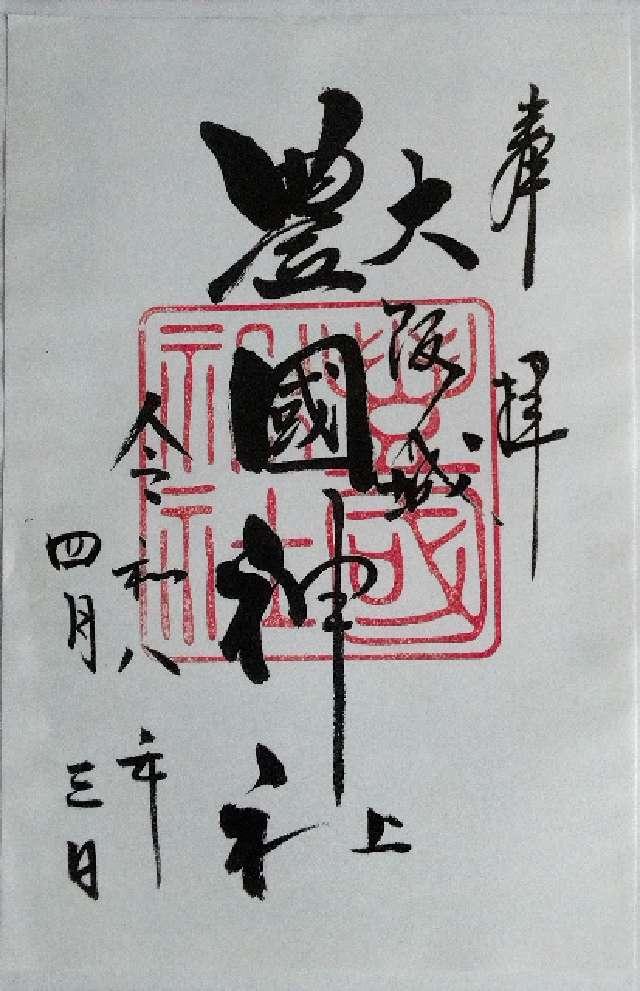 奉拝
大阪城
豊國神社
令和八年
四月三日
豊國神社